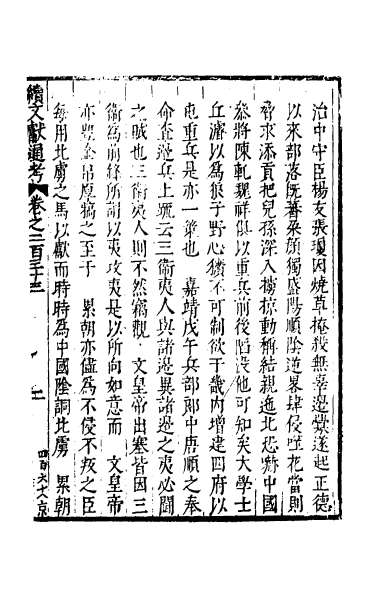 治中守臣楊友張瓊因燒草掩殺無辜邊釁遂起正德
以來部落既蕃朶顔獨盛陽順陰逆累肆侵噬花當則
脅求添貢把兒孫深入擄掠動稱結親迤北恐嚇中國
叅將陳乾魏祥俱以重兵前後陷喪他可知矣大學士
丘濬以為狼子野心猶不可制欲于畿内增建四府以
屯重兵是亦一策也　嘉靖戊午兵部郎中唐順之奉
命查邊兵上䟽云三衞夷人與諸邊異諸邊之夷必闘
之賊也三衞夷人則不然竊觀　文皇帝出塞皆因三
衞為前鋒所謂以夷攻夷是以所向如意而　文皇帝
亦豐金帛厚犒之至于　累朝亦儘為不侵不叛之臣
每用北虜之馬以獻而時時為中國陰詗北虜　累朝
續文獻通考　卷之二百三十三
四百六十八　京